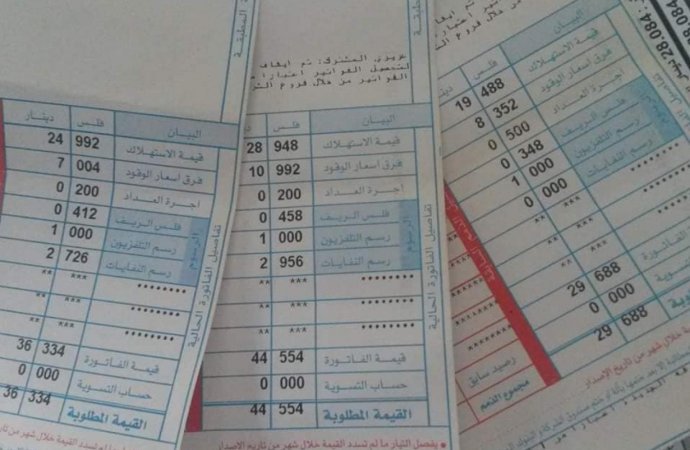 28.084
تفاصيل الفاتورة
البيان فلس دينار
قيمة الاستهلاك 488 19
فرق أسعار الوقود 352 8
أجرة العداد 500 0
فلس الريف 348 0
رسم التلفزيون 000 1
رسم النفايات 000 0
*** **
*** **
688 29
000 0
688 29
رصيد سابق
مجموع الذمم
خلال شهر من تاريخ الإصدار
عزيزي المشترك: تم ايقاف
لتحصيل الفواتير اعتبارا
الفواتير من خلال فروع
البيان فلس دينار
قيمة الاستهلاك 948 28
فرق أسعار الوقود 992 10
أجرة العداد 200 0
الرسوم
فلس الريف 458 0
رسم التلفزيون 000 1
رسم النفايات 956 2
******** *** **
******** *** **
قيمة الفاتورة 554 44
حساب التسوية 000 0
القيمة المطلوبة 554 44
تفاصيل الفاتورة الحالية
يفصل التيار ما لم تسدد القيمة خلال شهر من تاريخ الإصدار
المطبقة
البيان فلس دينار
قيمة الاستهلاك 992 24
فرق أسعار الوقود 004 7
أجرة العداد 200 0
الرسوم
فلس الريف 412 0
رسم التلفزيون 000 1
رسم النفايات 726 2
******** *** **
******** *** **
قيمة الفاتورة 334 36
حساب التسوية 000 0
القيمة المطلوبة 334 36
تفاصيل الفاتورة الحالية
تسدد القيمة خلال شهر من تاريخ